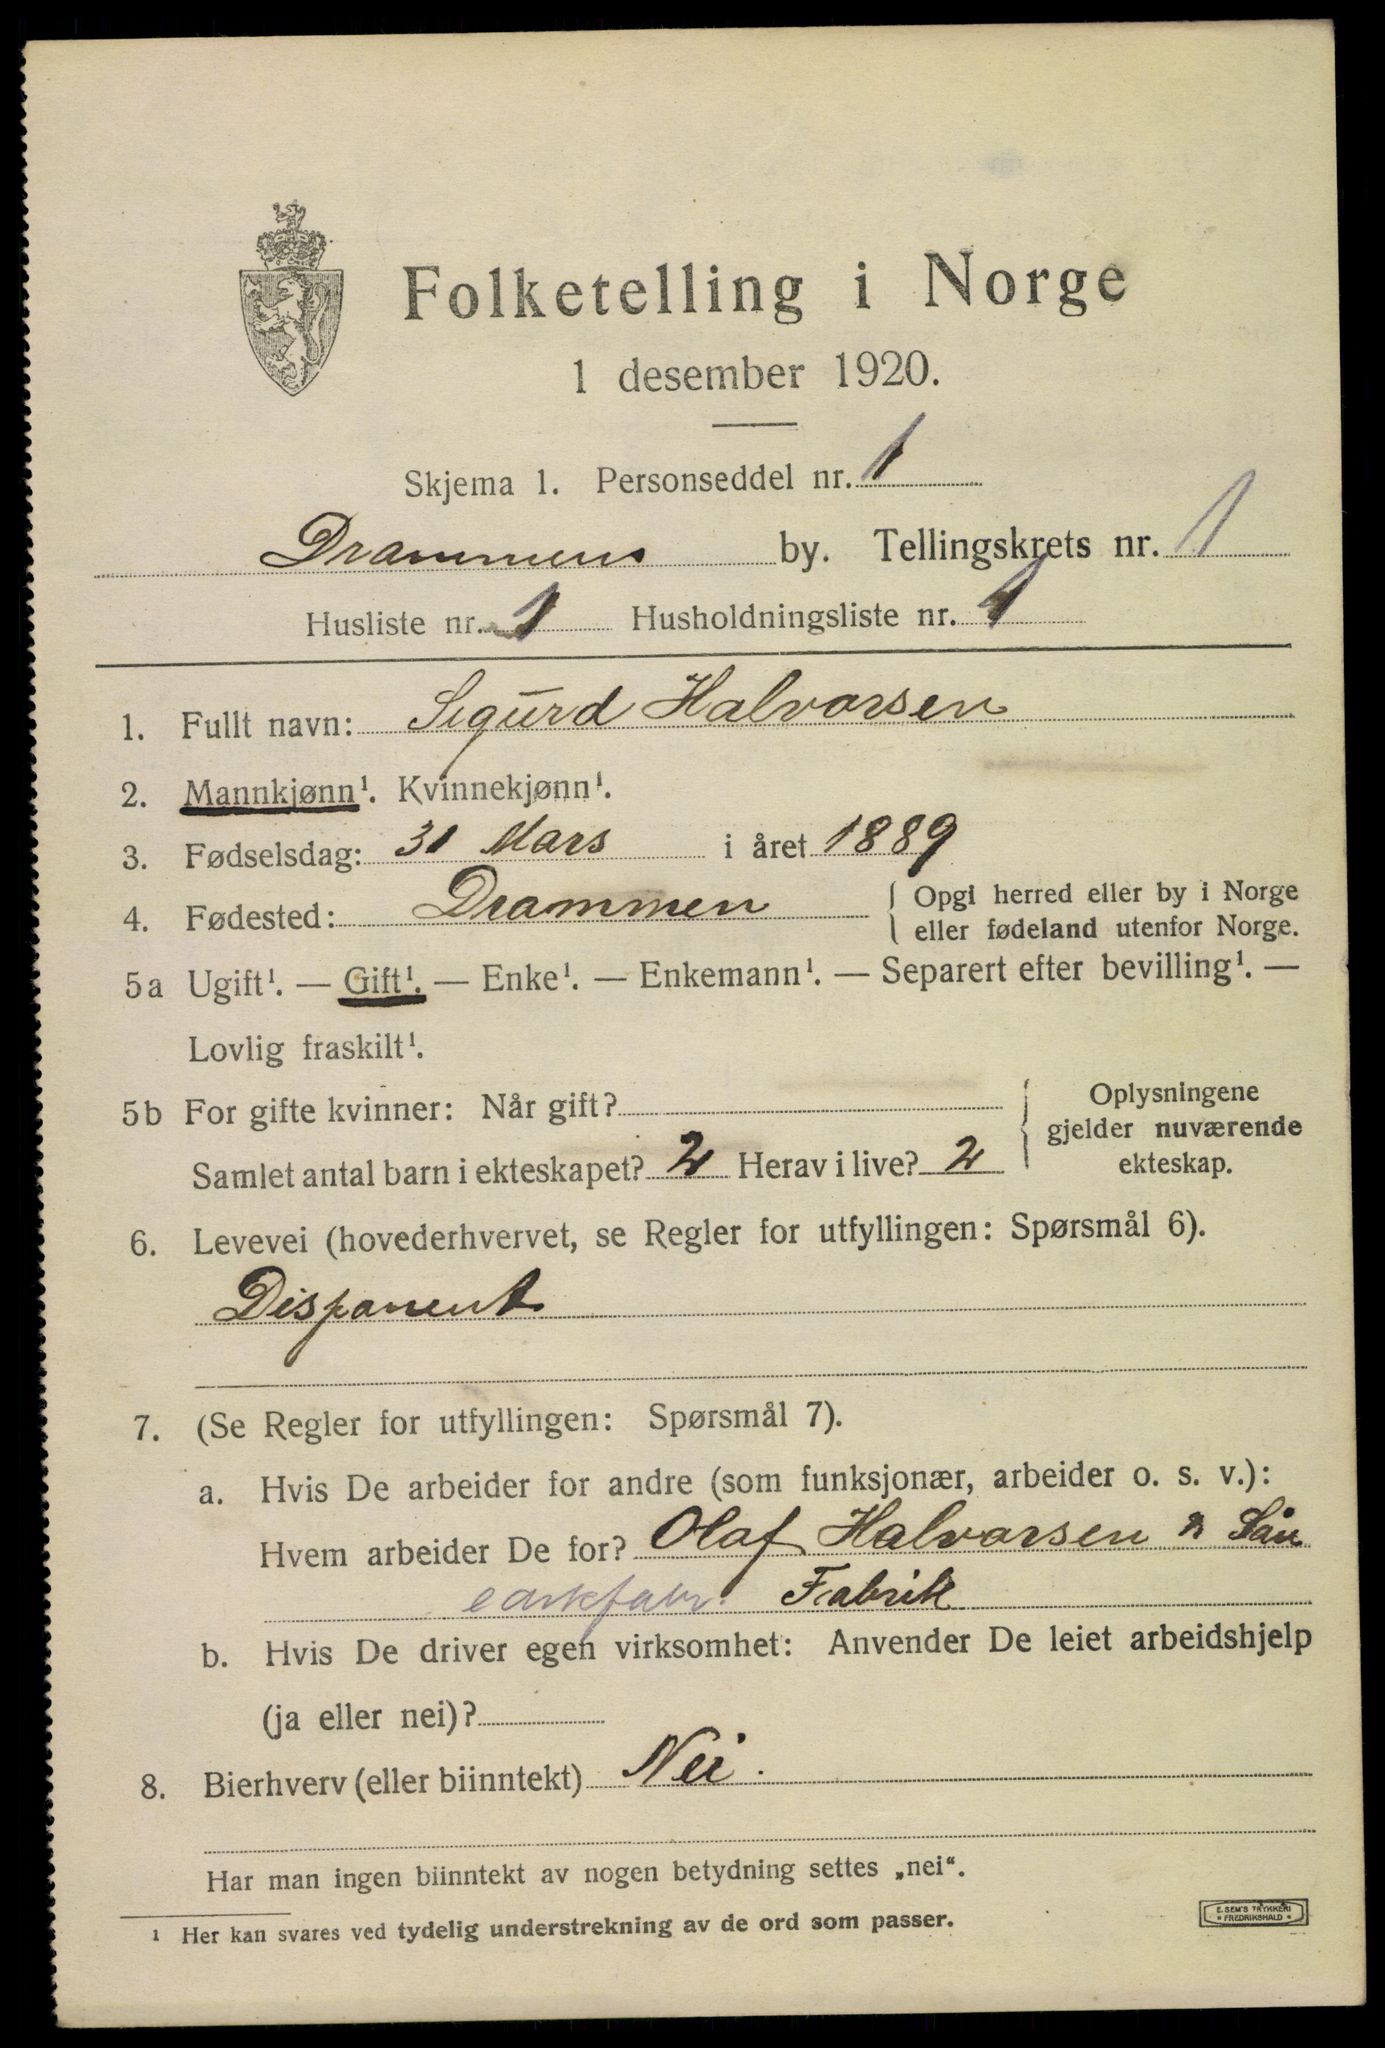 Folketelling i Norge
1 desember 1920.
Skjema 1. Personseddel nr. 1
Drammens by. Tellingskrets nr. 1
Husliste nr. 1 Husholdningsliste nr. 1
1. Fullt navn: Sigurd Halvorsen
2. Mannkjønn¹. Kvinnekjønn¹.
3. Fødselsdag: 31 Mars i året 1889
4. Fødested: Drammen { Opgi herred eller by i Norge
eller fødeland utenfor Norge.
5a Ugift¹. — Gift¹. — Enke¹. — Enkemann¹. — Separert efter bevilling¹. —
Lovlig fraskilt¹.
5b For gifte kvinner: Når gift? { Oplysningene
gjelder nuværende
Samlet antal barn i ekteskapet? 2 Herav i live? 2 ekteskap.
6. Levevei (hovederhvervet, se Regler for utfyllingen: Spørsmål 6).
Disponent
7. (Se Regler for utfyllingen: Spørsmål 7).
a. Hvis De arbeider for andre (som funksjonær, arbeider o. s. v.):
Hvem arbeider De for? Olaf Halvorsen & Søn
Fabrik
b. Hvis De driver egen virksomhet: Anvender De leiet arbeidshjelp
(ja eller nei)?
8. Bierhverv (eller biinntekt) Nei.
Har man ingen biinntekt av nogen betydning settes „nei“.
¹ Her kan svares ved tydelig understrekning av de ord som passer.
E. SEM'S TRYKKERI
* FREDRIKSHALD *